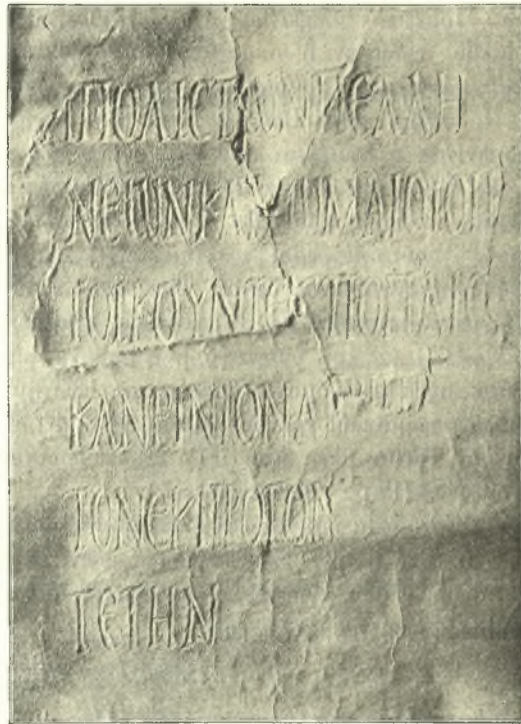 ΑΠΟΛΙϹΤΩΝΠΕΛΛΗ
ΝΕΩΝΚΑΙΡΩΜΑΙΟΙΟΙΚ
ΤΟΙΚΟΥΝΤΕϹΠΟΠΛΙΟ
ΚΑΝΡΙΝΙΟΝΑ
ΤΟΝΕΚΠΡΟΓΟΝ
ΓΕΤΗΝ